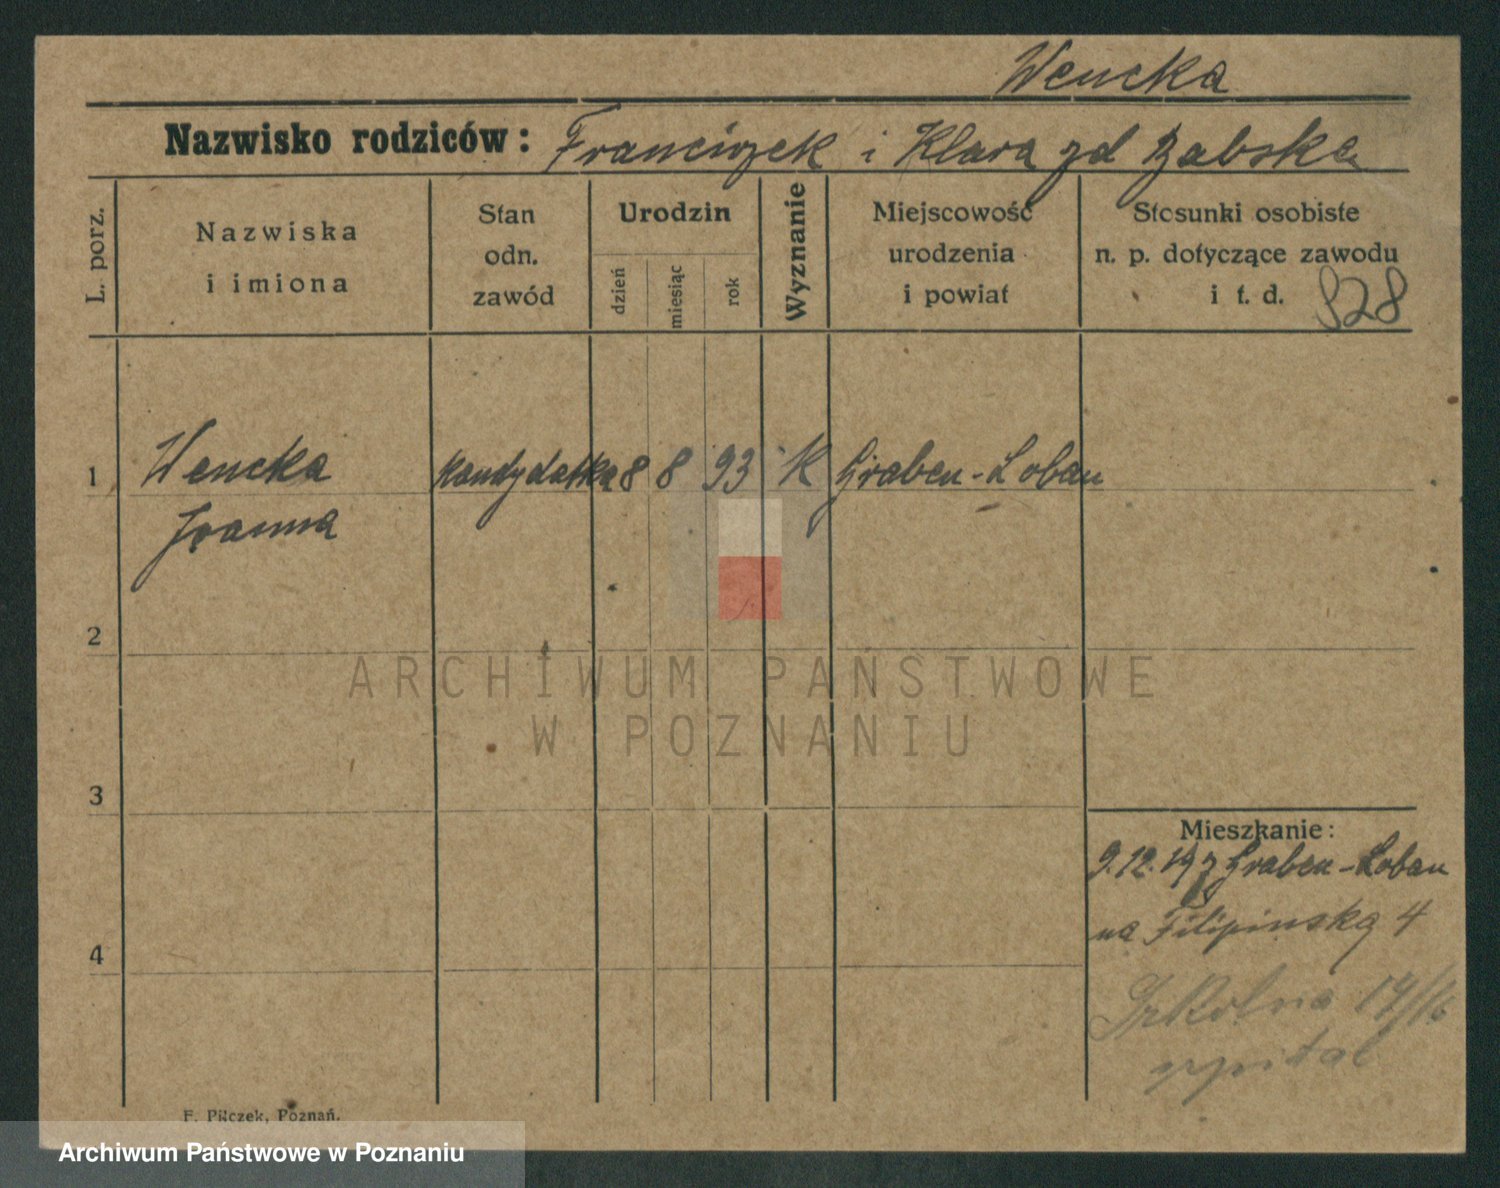 Wencka
Nazwisko rodziców: Franciszek i Klara zd Żabska
L. porz.
Nazwiska
i imiona
Stan
odn.
zawód
Urodzin
dzień
miesiąc
rok
Wyznanie
Miejscowość
urodzenia
i powiat
Stosunki osobiste
n. p. dotyczące zawodu
i t. d.
928
1 Wencka kandydatka 8 8 93 K Graben-Loban
Joanna
2
3
4
Mieszkanie:
9.12.19 z Graben-Loban
na Filipinską 4
Szkolna 14/16
szpital
F. Pilczek, Poznań.
ARCHIWUM PAŃSTWOWE
W POZNANIU
Archiwum Państwowe w Poznaniu